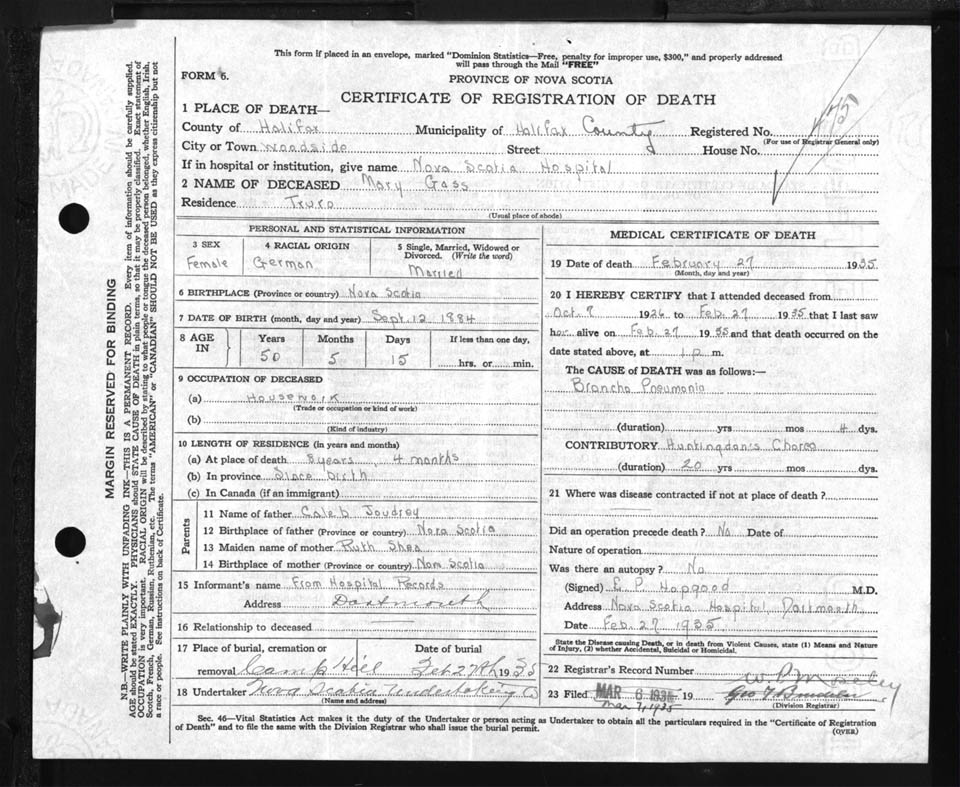 This form if placed in an envelope, marked "Dominion Statistics—Free, penalty for improper use, $300," and properly addressed
will pass through the Mail "FREE"
FORM 6.
PROVINCE OF NOVA SCOTIA
CERTIFICATE OF REGISTRATION OF DEATH
1 PLACE OF DEATH—
County of Halifax Municipality of Halifax County Registered No. 475
(For use of Registrar General only)
City or Town Woodside Street House No.
If in hospital or institution, give name Nova Scotia Hospital
2 NAME OF DECEASED Mary Gass
Residence Truro
(Usual place of abode)
PERSONAL AND STATISTICAL INFORMATION
3 SEX 4 RACIAL ORIGIN 5 Single, Married, Widowed or
Divorced. (Write the word)
Female German Married
6 BIRTHPLACE (Province or country) Nova Scotia
7 DATE OF BIRTH (month, day and year) Sept. 12 1884
8 AGE IN Years Months Days If less than one day,
50 5 15 hrs. or min.
9 OCCUPATION OF DECEASED
(a) Housework
(Trade or occupation or kind of work)
(b)
(Kind of industry)
10 LENGTH OF RESIDENCE (in years and months)
(a) At place of death 8 years, 4 months
(b) In province Since birth
(c) In Canada (if an immigrant)
Parents
11 Name of father Caleb Joudrey
12 Birthplace of father (Province or country) Nova Scotia
13 Maiden name of mother Ruth Shea
14 Birthplace of mother (Province or country) Nova Scotia
15 Informant's name From Hospital Records
Address Dartmouth
16 Relationship to deceased
17 Place of burial, cremation or Date of burial
removal Camp Hill Feb 27th 1935
18 Undertaker Nova Scotia Undertaking Co
(Name and address)
MEDICAL CERTIFICATE OF DEATH
19 Date of death February 27 1935
(Month, day and year)
20 I HEREBY CERTIFY that I attended deceased from
Oct. 8 1926 to Feb. 27 1935 that I last saw
her alive on Feb. 27 1935 and that death occurred on the
date stated above, at 1 p m.
The CAUSE of DEATH was as follows:—
Broncho Pneumonia
(duration) yrs mos 4 dys.
CONTRIBUTORY Huntingdon's Chorea
(duration) 20 yrs mos dys.
21 Where was disease contracted if not at place of death?
Did an operation precede death? No Date of
Nature of operation
Was there an autopsy? No
(Signed) E. P. Hopgood M.D.
Address Nova Scotia Hospital, Dartmouth
Date Feb. 27 1935
State the Disease causing Death, or in death from Violent Causes, state (1) Means and Nature
of Injury, (2) whether Accidental, Suicidal or Homicidal.
22 Registrar's Record Number
23 Filed MAR 6 1935 19
Mar 7, 1935
(Division Registrar)
Sec. 46—Vital Statistics Act makes it the duty of the Undertaker or person acting as Undertaker to obtain all the particulars required in the "Certificate of Registration
of Death" and to file the same with the Division Registrar who shall issue the burial permit.
(OVER)
MARGIN RESERVED FOR BINDING
N.B.—WRITE PLAINLY WITH UNFADING INK—THIS IS A PERMANENT RECORD. Every item of information should be carefully supplied.
AGE should be stated EXACTLY. PHYSICIANS should STATE CAUSE OF DEATH in plain terms, so that it may be properly classified. Exact statement of
OCCUPATION is very important. RACIAL ORIGIN will be described by stating to what people or tongue the deceased person belonged, whether English, Irish,
Scotch, French, German, Russian, Ruthenian, etc. The terms "AMERICAN" or "CANADIAN" SHOULD NOT BE USED as they express citizenship but not
a race or people. See instructions on back of Certificate.